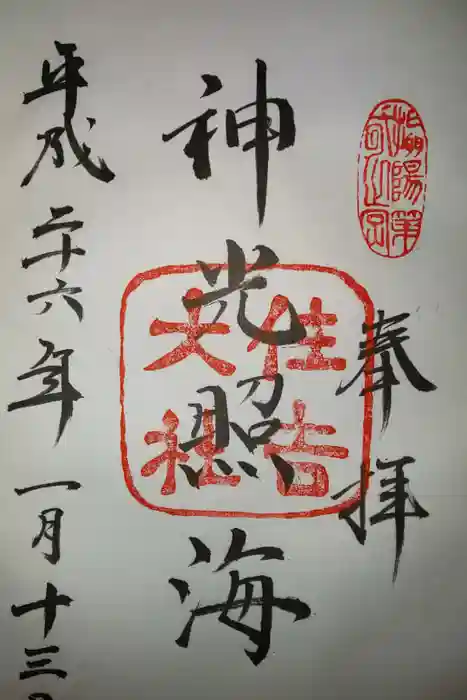 攝陽第
奉拝
住吉
大社
神光照海
平成二十六年一月十三日